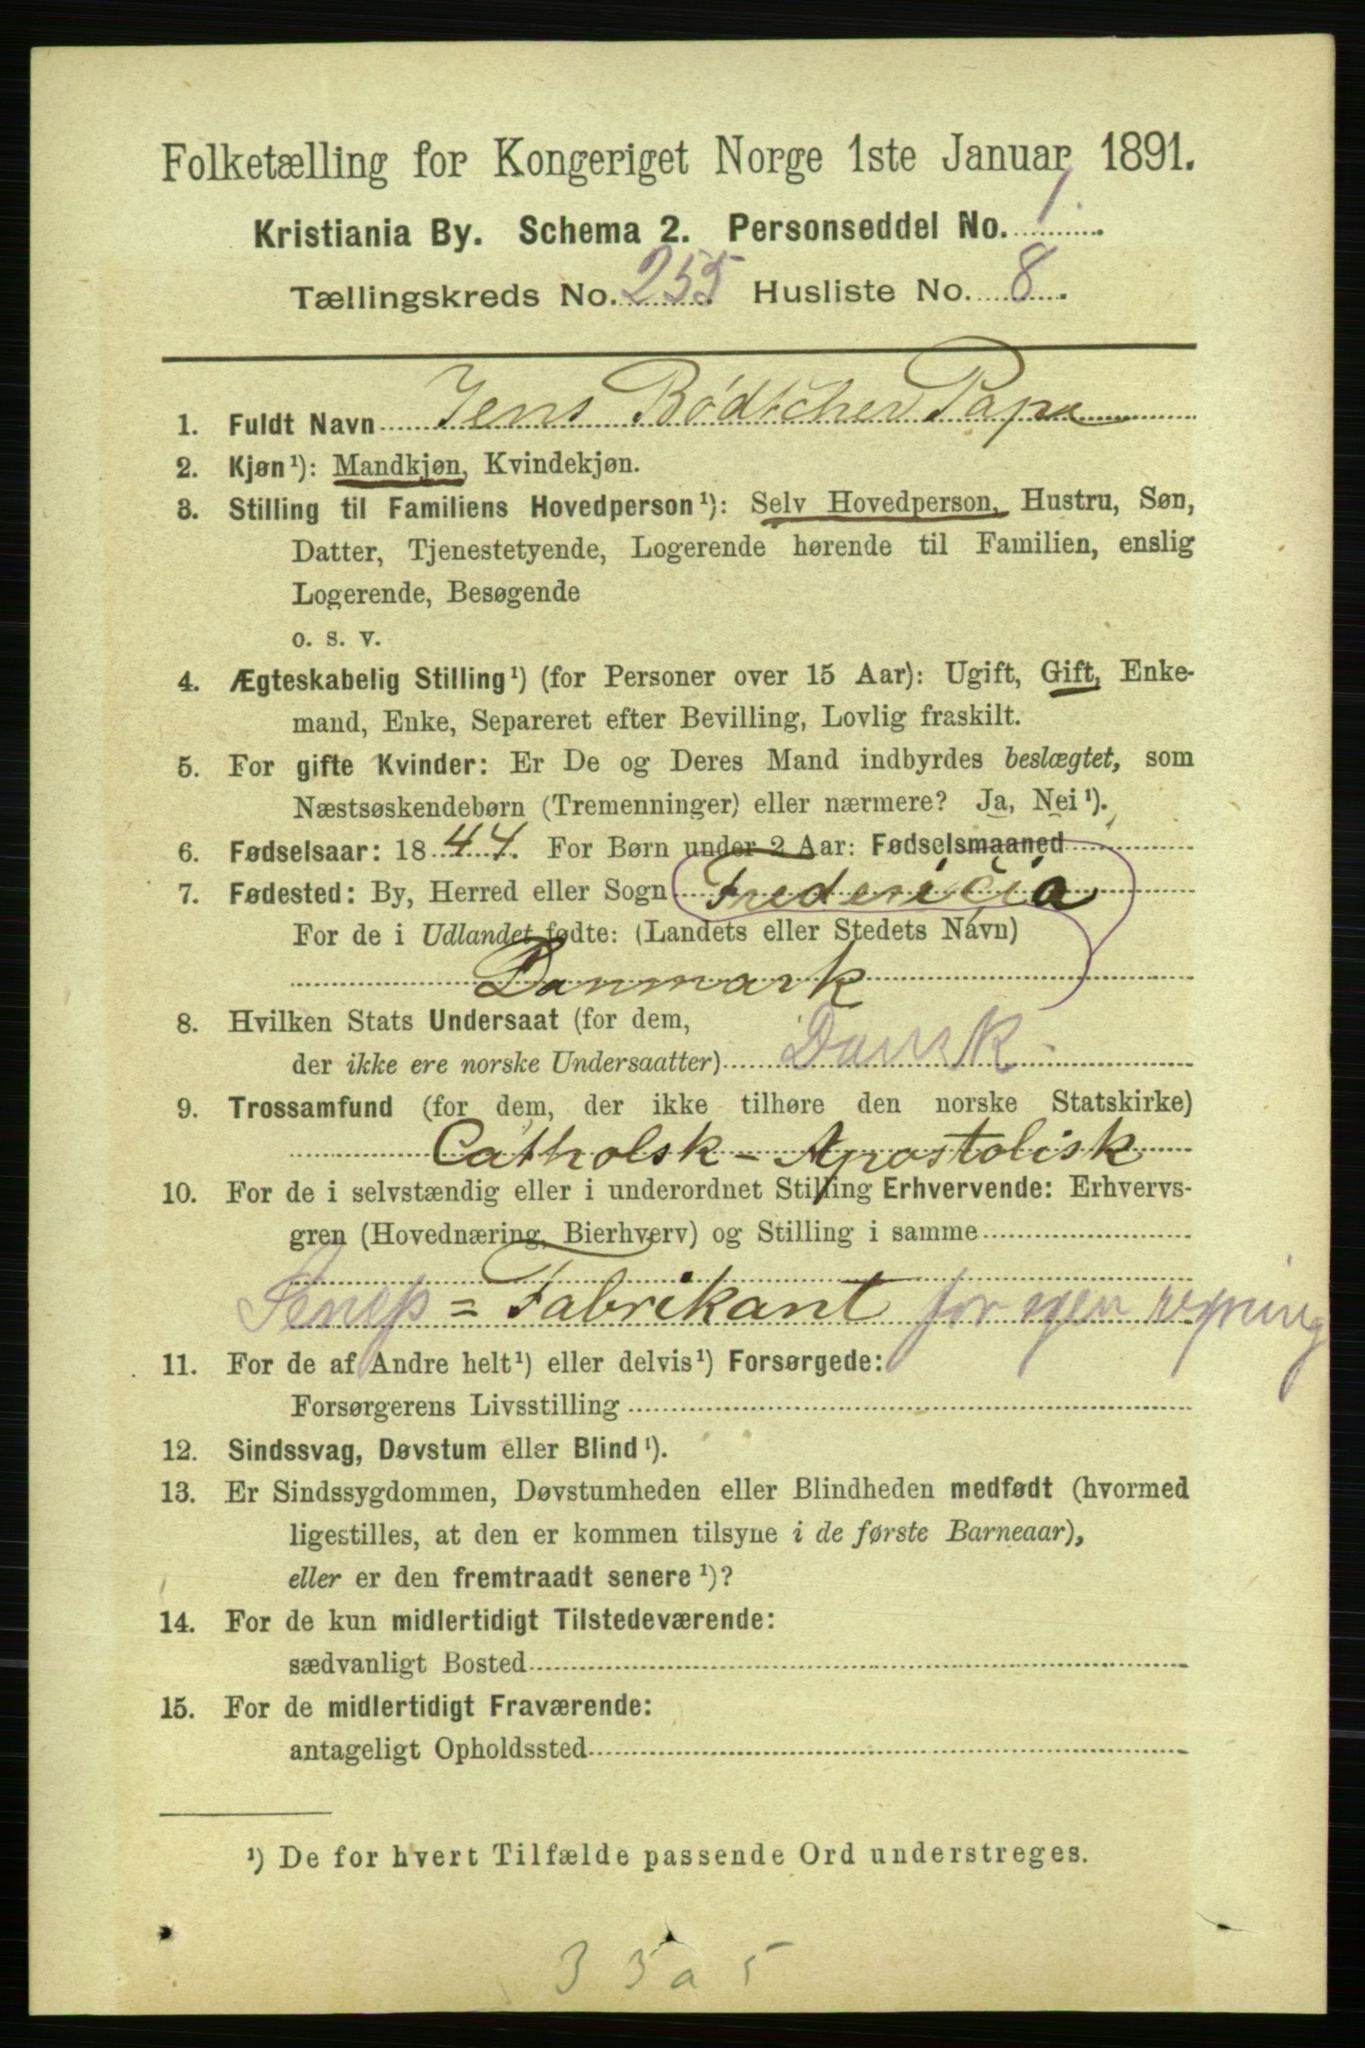 Folketælling for Kongeriget Norge 1ste Januar 1891.
Kristiania By. Schema 2. Personseddel No. 1.
Tællingskreds No. 255 Husliste No. 8.
1. Fuldt Navn Jens Bødtcher Pape
2. Kjøn¹): Mandkjøn, Kvindekjøn.
3. Stilling til Familiens Hovedperson¹): Selv Hovedperson, Hustru, Søn,
Datter, Tjenestetyende, Logerende hørende til Familien, enslig
Logerende, Besøgende
o. s. v.
4. Ægteskabelig Stilling¹) (for Personer over 15 Aar): Ugift, Gift, Enke-
mand, Enke, Separeret efter Bevilling, Lovlig fraskilt.
5. For gifte Kvinder: Er De og Deres Mand indbyrdes beslægtet, som
Næstsøskendebørn (Tremenninger) eller nærmere? Ja, Nei¹).
6. Fødselsaar: 1844. For Børn under 2 Aar: Fødselsmaaned
7. Fødested: By, Herred eller Sogn Fredericia
For de i Udlandet fødte: (Landets eller Stedets Navn)
Danmark
8. Hvilken Stats Undersaat (for dem,
der ikke ere norske Undersaatter) Dansk
9. Trossamfund (for dem, der ikke tilhøre den norske Statskirke)
Catholsk - Apostolisk
10. For de i selvstændig eller i underordnet Stilling Erhvervende: Erhvervs-
gren (Hovednæring, Bierhverv) og Stilling i samme
Senep = Fabrikant for egen regning
11. For de af Andre helt¹) eller delvis¹) Forsørgede:
Forsørgerens Livsstilling
12. Sindssvag, Døvstum eller Blind¹).
13. Er Sindssygdommen, Døvstumheden eller Blindheden medfødt (hvormed
ligestilles, at den er kommen tilsyne i de første Barneaar),
eller er den fremtraadt senere¹)?
14. For de kun midlertidigt Tilstedeværende:
sædvanligt Bosted
15. For de midlertidigt Fraværende:
antageligt Opholdssted
¹) De for hvert Tilfælde passende Ord understreges.
3 5 a 5